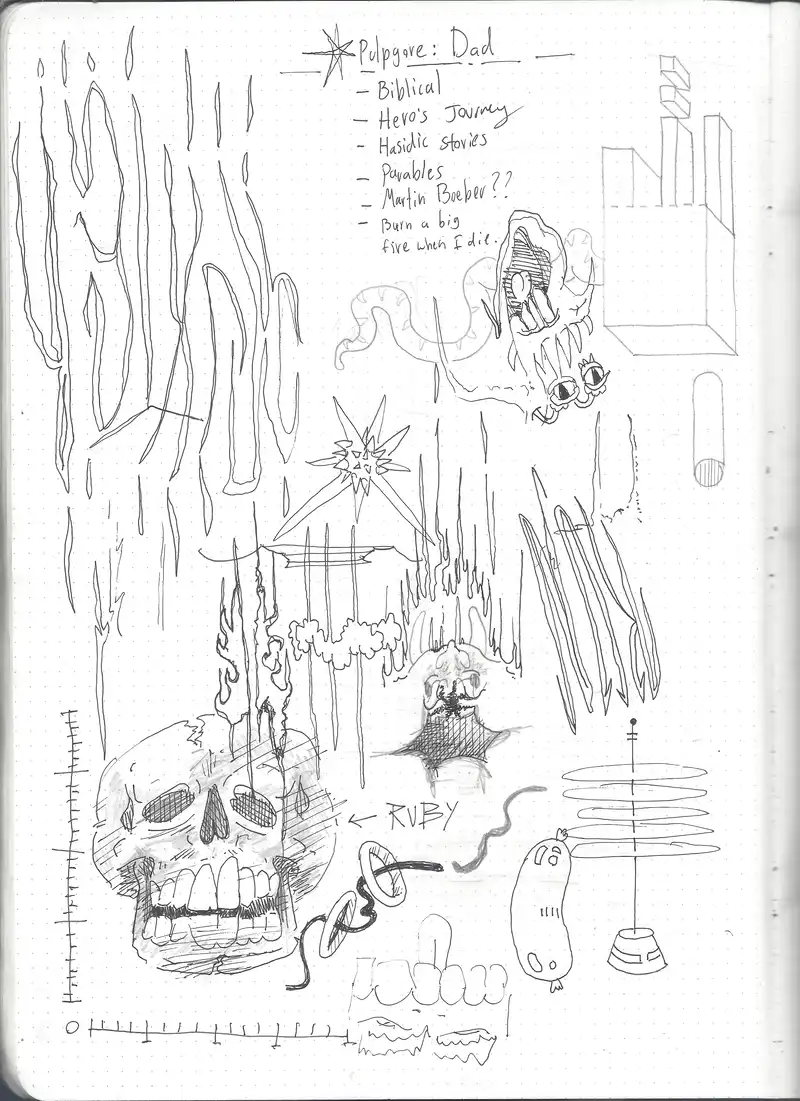 Pulpgore: Dad
- Biblical
- Hero's Journey
- Hasidic stories
- Parables
- Martin Boeber??
- Burn a big
fire when I die.
← RUBY
0